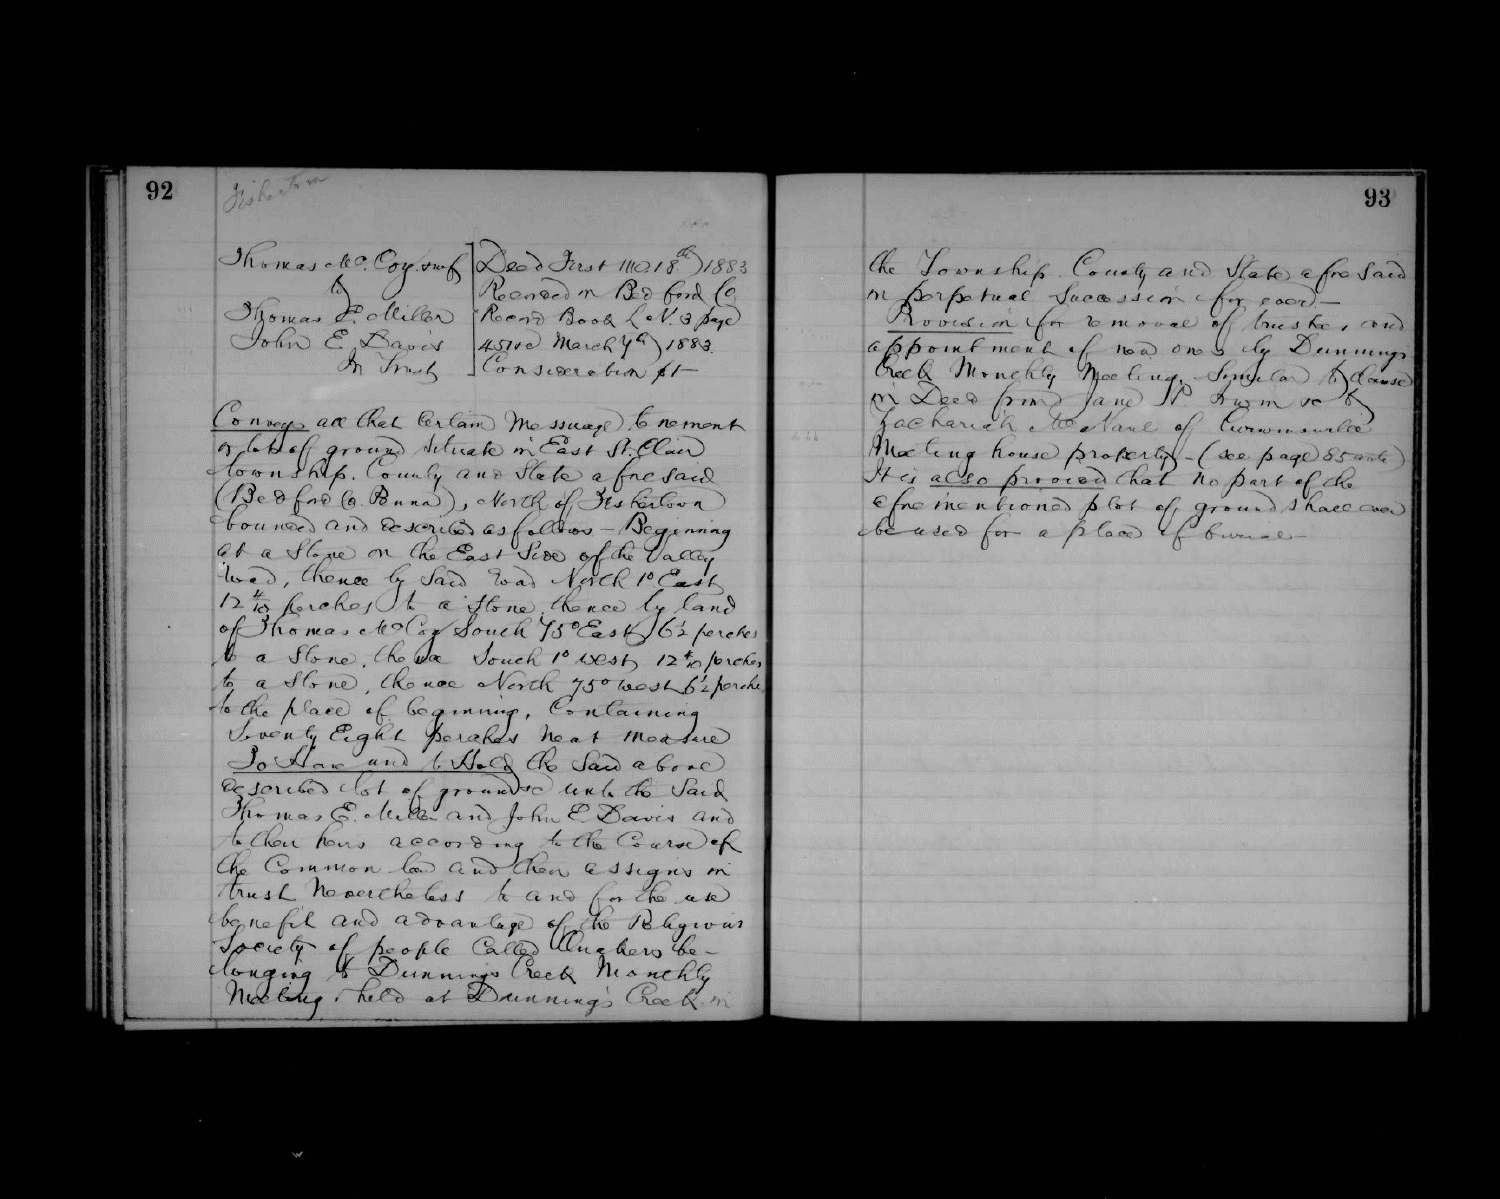 92
Fishertown
Thomas Mc. Coy. & wf
to
Thomas E. Miller
John E. Davis
In Trust
Deed First mo. 18th 1883
Recorded in Bedford Co
Record Book L N. 3 page
451 &c March 7th 1883.
Consideration $1-
Conveys all that Certain Messuage, tenement
or lot of ground situate in East St. Clair
township. County and State aforesaid
(Bedford Co. Penna), North of Fishertown
bounded and described as follows - Beginning
at a Stone on the East Side of the Valley
road, thence by said road North 1° East
12 4/10 perches to a Stone, thence by land
of Thomas McCoy South 75° East 6½ perches
to a Stone, thence South 1° West, 12 4/10 perches
to a Stone, thence North 75° West 6½ perches
to the place of beginning, Containing
Seventy Eight perches neat measure
To Have and to Hold the said above
described lot of ground &c unto the said
Thomas E. Miller and John E. Davis and
to their heirs according to the Course of
the Common law and their assigns in
trust Nevertheless to and for the use
benefit and advantage of the Religious
Society of people Called Quakers be-
longing to Dunnings Creek Monthly
Meeting, held at Dunning's Creek in
93
the Township County and State aforesaid
in perpetual succession for ever -
Provision for removal of trustee, and
appointment of new ones by Dunnings
Creek Monthly Meeting. Similar to clause
in Deed from Jane W. Irwin &c to
Zachariah McNaul of Curwensville
Meeting house property - (see page 85 ante)
It is also provided that no part of the
aforementioned plot of ground shall ever
be used for a place of burial -